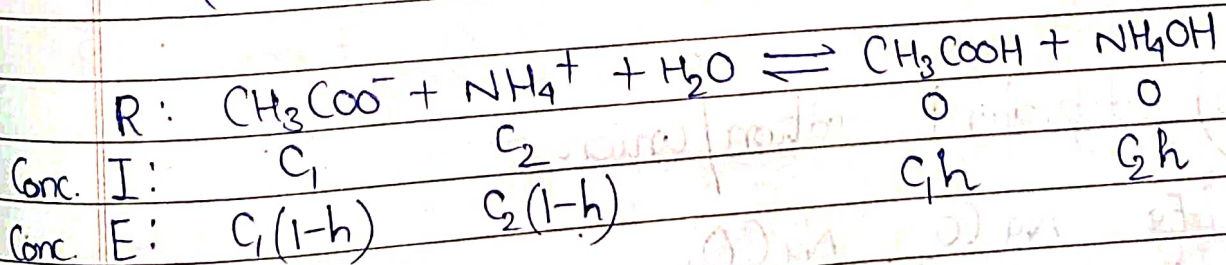 R: CH₃COO⁻ + NH₄⁺ + H₂O ⇌ CH₃COOH + NH₄OH
Conc. I: C₁ C₂ 0 0
Conc. E: C₁(1-h) C₂(1-h) C₁h C₂h